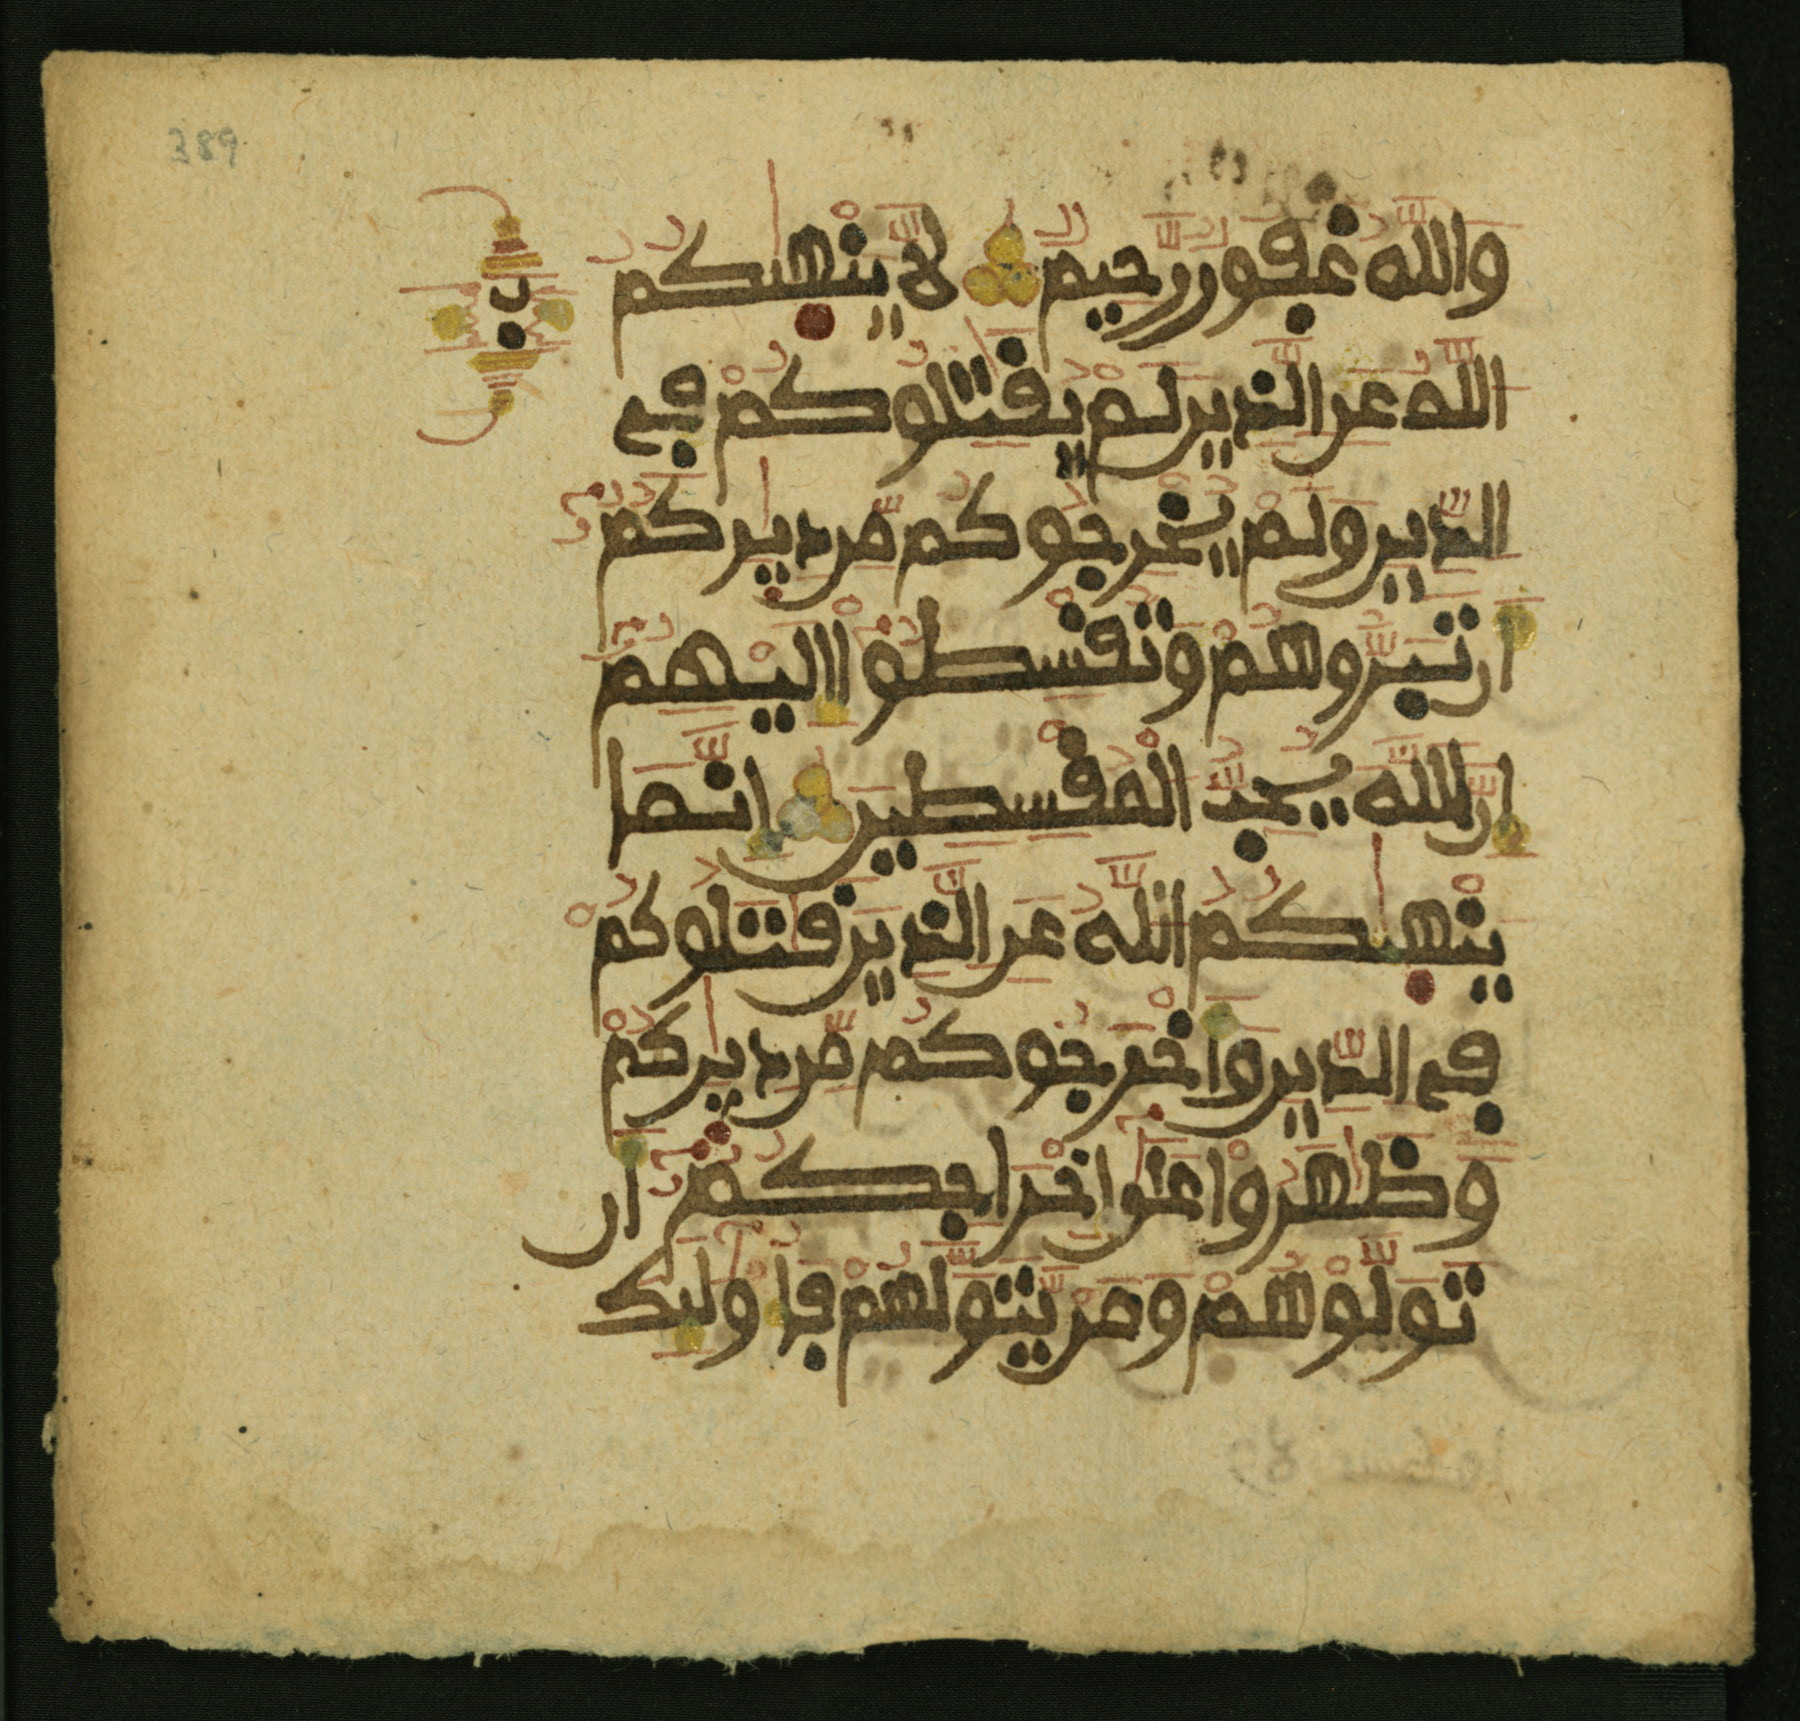 389
والله غفور رحيم لا ينهيكم
ب
الله عن الذين لم يقتلوكم في
الدين ولم يخرجوكم من ديركم
ان تبروهم وتقسطوا اليهم
ان الله يحب المقسطين انما
ينهيكم الله عن الذين قتلوكم
في الدين واخرجوكم من ديركم
وظهروا على اخراجكم ان
تولوهم ومن يتولهم فاولئك